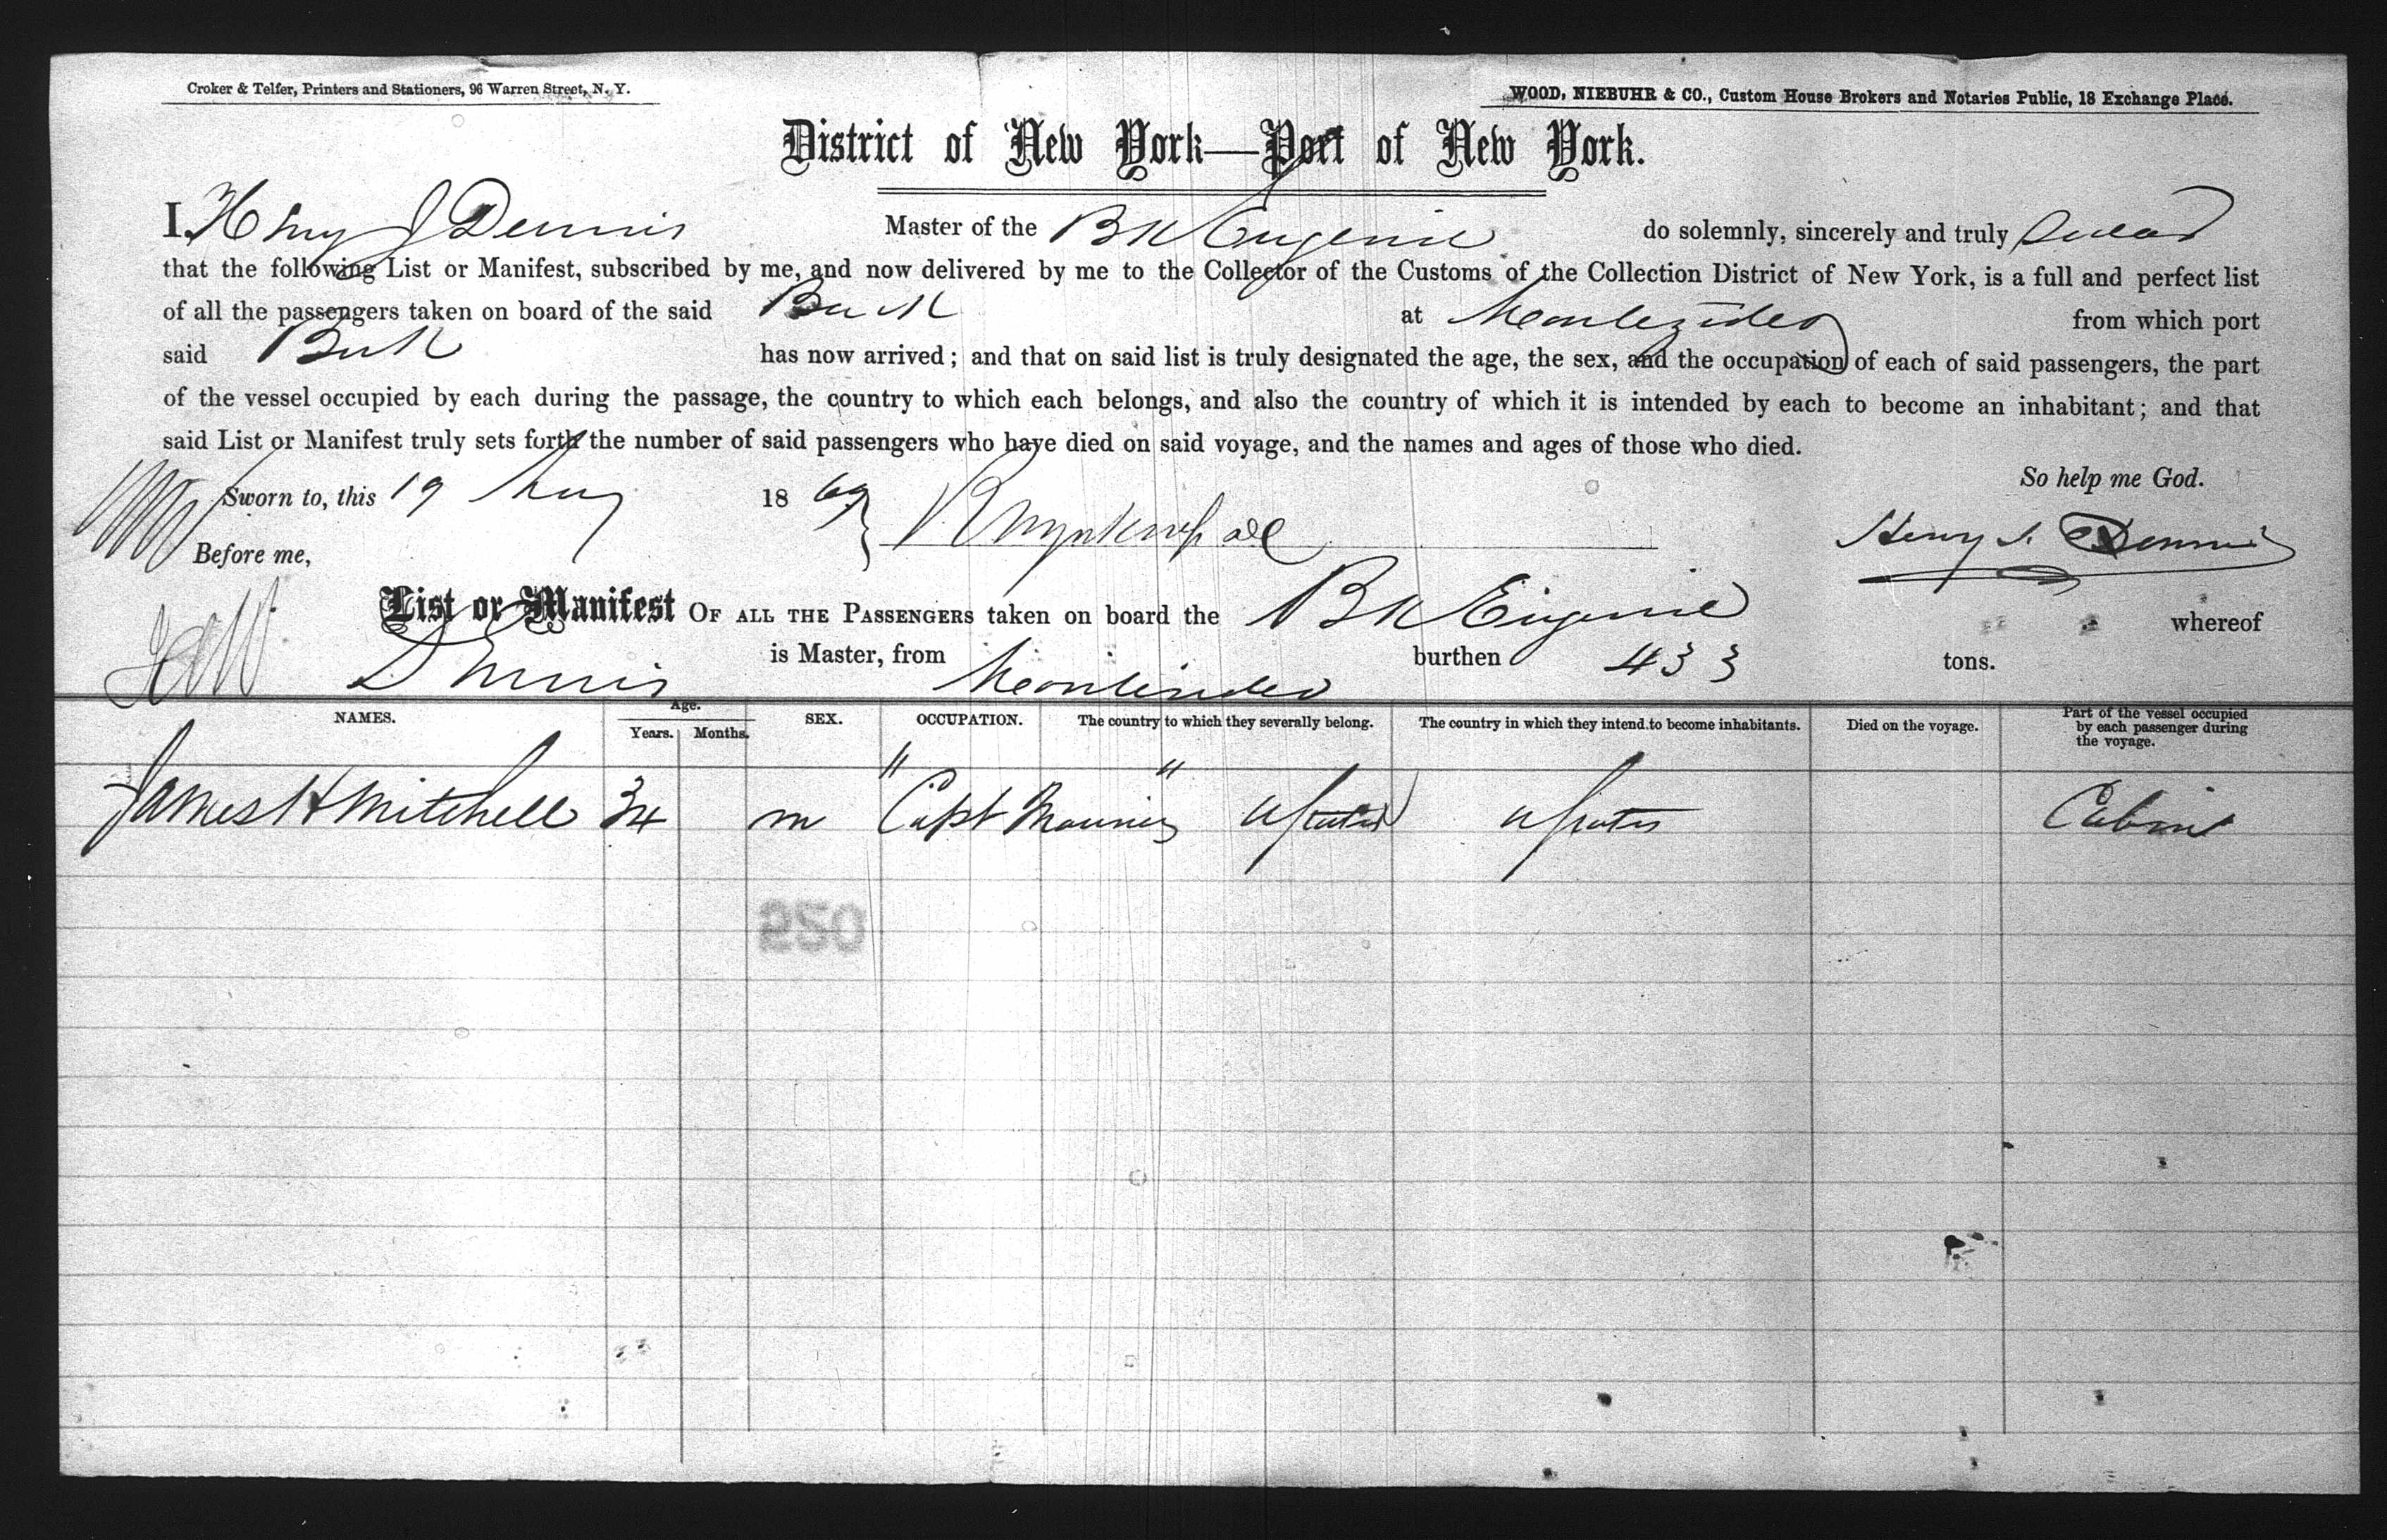 Croker & Telfer, Printers and Stationers, 96 Warren Street, N. Y.
WOOD, NIEBUHR & CO., Custom House Brokers and Notaries Public, 18 Exchange Place.
District of New York—Port of New York.
I, Henry J Dennis Master of the Bk Eugenie do solemnly, sincerely and truly swear
that the following List or Manifest, subscribed by me, and now delivered by me to the Collector of the Customs of the Collection District of New York, is a full and perfect list
of all the passengers taken on board of the said Bark at Montevideo from which port
said Bark has now arrived; and that on said list is truly designated the age, the sex, and the occupation of each of said passengers, the part
of the vessel occupied by each during the passage, the country to which each belongs, and also the country of which it is intended by each to become an inhabitant; and that
said List or Manifest truly sets forth the number of said passengers who have died on said voyage, and the names and ages of those who died.
So help me God.
Sworn to, this 19 Aug 1869
Henry J. Dennis
Before me,
List or Manifest OF ALL THE PASSENGERS taken on board the Bk Eugenie whereof
Dennis is Master, from Montevideo burthen 433 tons.
NAMES. Age. Years. Months. SEX. OCCUPATION. The country to which they severally belong. The country in which they intend to become inhabitants. Died on the voyage. Part of the vessel occupied by each passenger during the voyage.
" "
James H Mitchell 34 m Capt Mariner U States U States Cabin
250